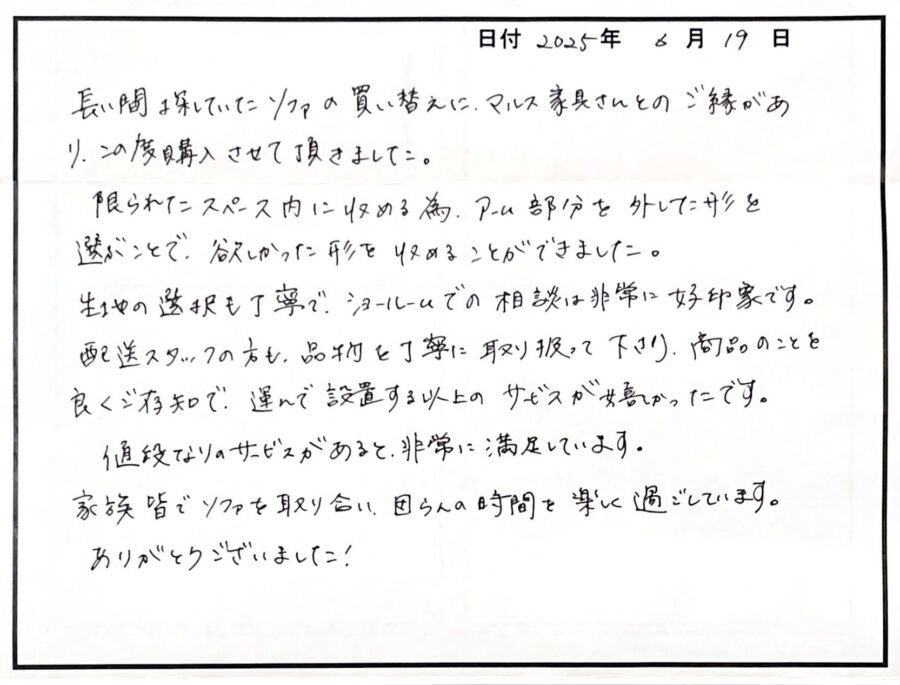 日付 2025年 6月19日
長い間探していたソファの買い替えに、マルス家具さんとのご縁があ
り、この度購入させて頂きました。
限られたスペース内に収める為、アーム部分を外した形を
選ぶことで、欲しかった形を収めることができました。
生地の選択も丁寧で、ショールームでの相談は非常に好印象です。
配送スタッフの方も、品物を丁寧に取り扱って下さり、商品のことを
良くご存知で、運んで設置する以上のサービスが嬉しかったです。
値段なりのサービスがあると、非常に満足しています。
家族皆でソファを取り合い、団らんの時間を楽しく過ごしています。
ありがとうございました!